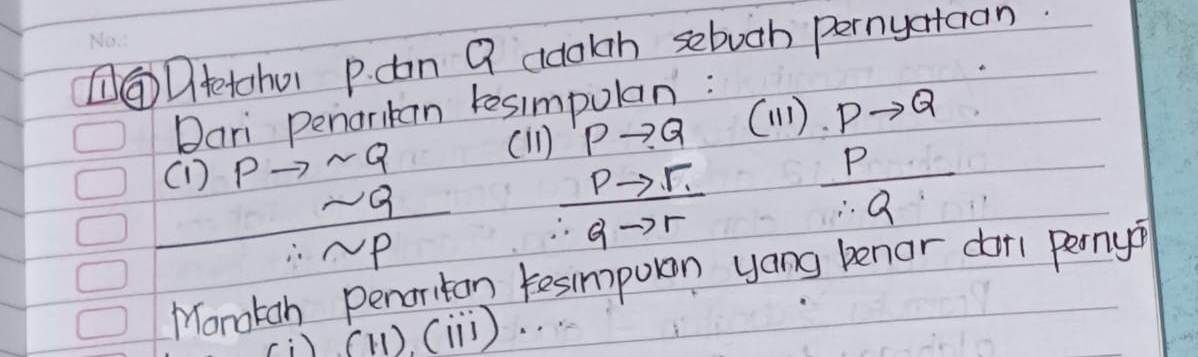 No.:
1 a Diketahui P.dan Q adalah sebuah pernyataan.
Dari penarikan kesimpulan :
(i) P → ~Q (ii) P → Q (iii). P → Q
~Q P → r. P
∴ ~P ∴ q → r ∴ Q
Manakah penarikan kesimpulan yang benar dari pernya
(i) (ii), (iii)...